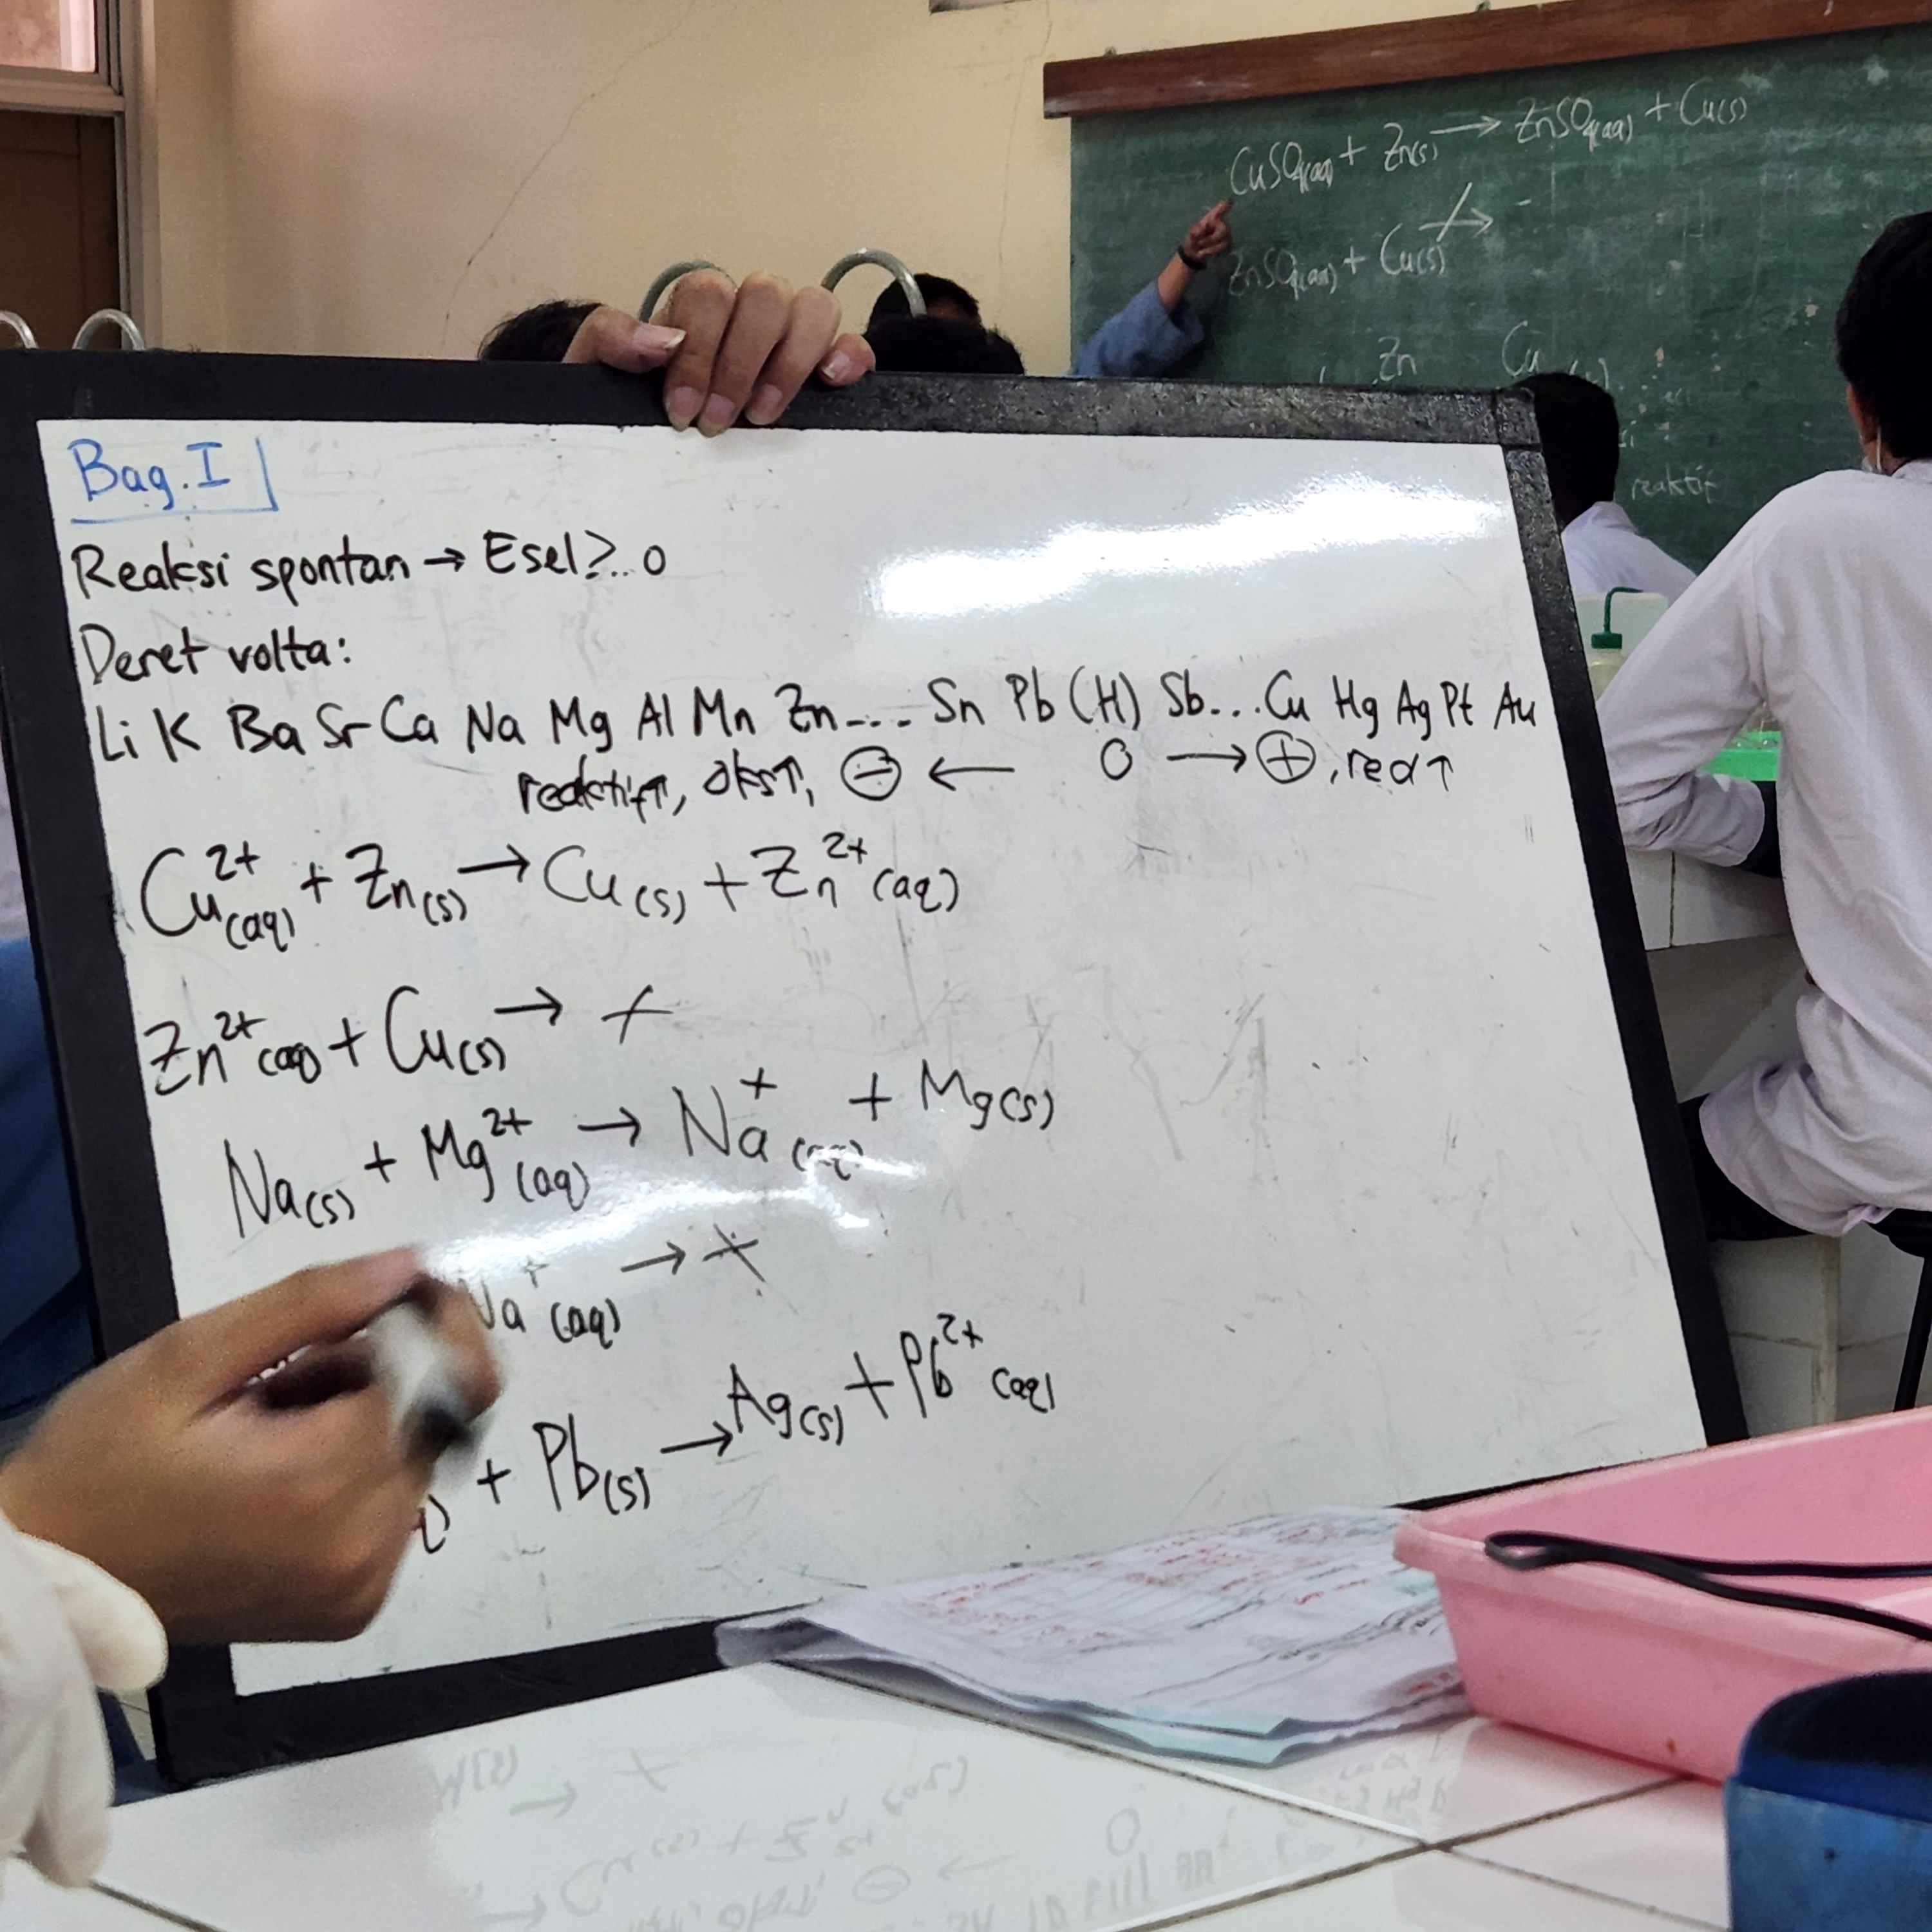 CuSO₄(aq) + Zn(s) → ZnSO₄(aq) + Cu(s)
ZnSO₄(aq) + Cu(s) ↛ -
Zn Cu
reaktif
Bag. I
Reaksi spontan → Esel > .. 0
Deret volta:
Li K Ba Sr Ca Na Mg Al Mn Zn .... Sn Pb (H) Sb... Cu Hg Ag Pt Au
reaktif↑, oks↑, ⊖ ← 0 → ⊕, red↑
Cu²⁺(aq) + Zn(s) → Cu(s) + Zn²⁺(aq)
Zn²⁺(aq) + Cu(s) → ×
Na(s) + Mg²⁺(aq) → Na⁺(aq) + Mg(s)
Na⁺(aq) → ×
+ Pb(s) → Ag(s) + Pb²⁺(aq)